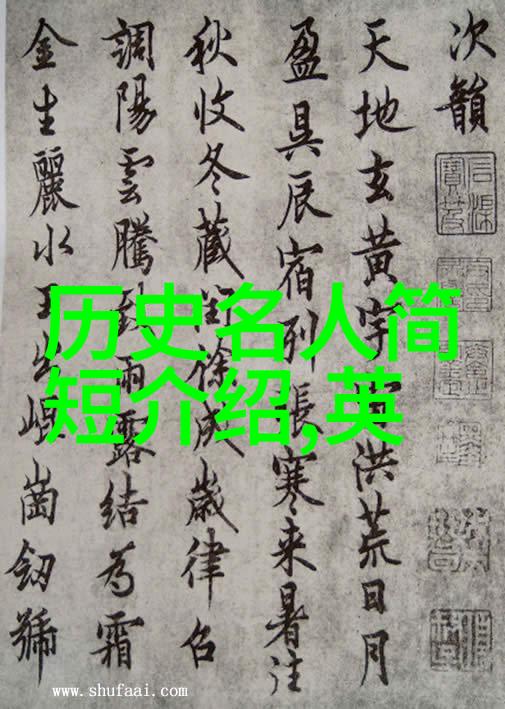 历史名人简
短介绍,英
次韻
天地玄黄宇宙洪荒日月
盈昃辰宿列張寒来暑往
秋收冬藏閏徐成歲律召
調陽雲騰致雨露結為霜
金生麗水玉出崐崗劒號
www.shufaai.com